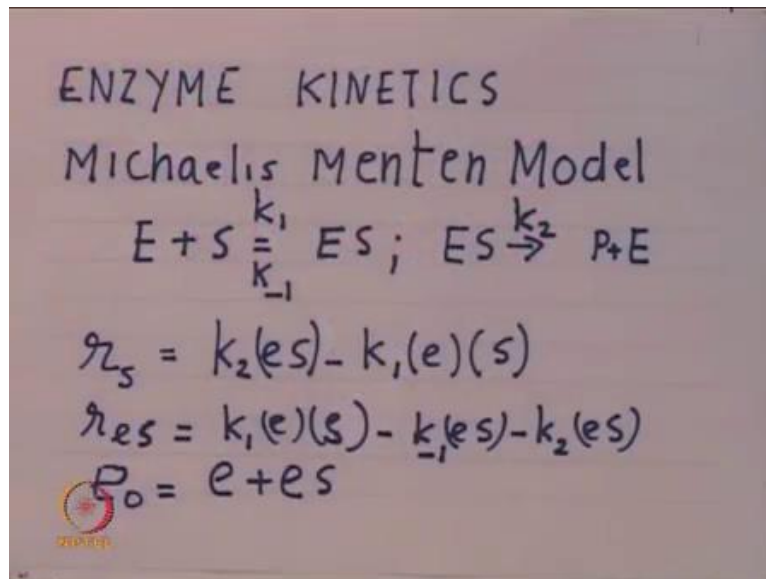 ENZYME KINETICS
Michaelis Menten Model
E + S =^{k₁}_{k₋₁} ES; ES →^{k₂} P+E
r_s = k₂(es) - k₁(e)(s)
r_es = k₁(e)(s) - k₋₁(es) - k₂(es)
e₀ = e + es
NPTEL